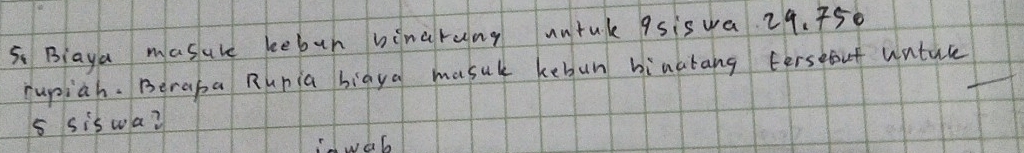 5. Biaya masuk kebun binatang untuk 9 siswa 29.750
rupiah. Berapa Rupia biaya masuk kebun binatang tersebut untuk
5 siswa?
jawab